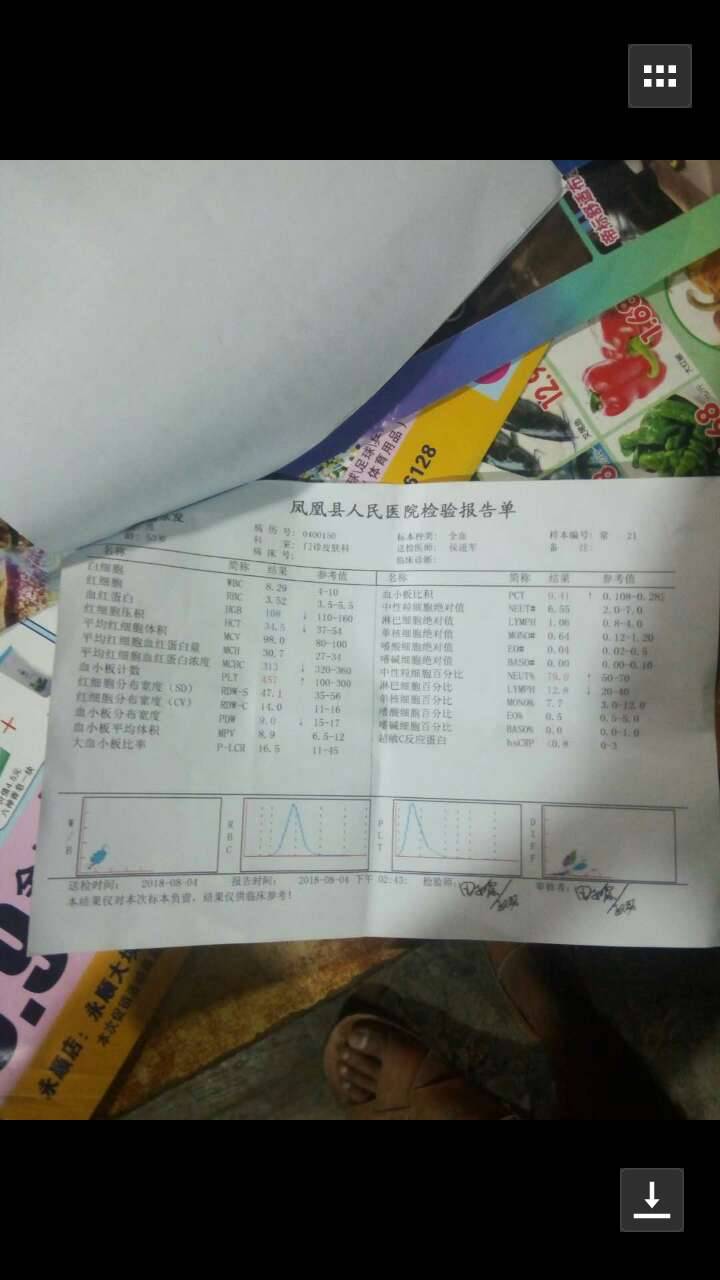 帝标舒适布
1.68
大红椒
12.9
68
6128
球\足球\乒
体育用品）
凤凰县人民医院检验报告单
病历号: 0400150
标本种类: 全血
样本编号: 常 21
科 室: 门诊皮肤科
送检医师: 侯道军
备 注:
病床号:
临床诊断:
名称 简称 结果 参考值
白细胞 WBC 8.29 4-10
红细胞 RBC 3.52 3.5-5.5
血红蛋白 HGB 108 ↓ 110-160
红细胞压积 HCT 34.5 ↓ 37-54
平均红细胞体积 MCV 98.0 80-100
平均红细胞血红蛋白量 MCH 30.7 27-34
平均红细胞血红蛋白浓度 MCHC 313 ↓ 320-360
血小板计数 PLT 457 ↑ 100-300
红细胞分布宽度（SD） RDW-S 47.1 35-56
红细胞分布宽度（CV） RDW-C 14.0 11-16
血小板分布宽度 PDW 9.0 ↓ 15-17
血小板平均体积 MPV 8.9 6.5-12
大血小板比率 P-LCR 16.5 11-45
名称 简称 结果 参考值
血小板比积 PCT 0.41 ↑ 0.108-0.282
中性粒细胞绝对值 NEUT# 6.55 2.0-7.0
淋巴细胞绝对值 LYMPH 1.06 0.8-4.0
单核细胞绝对值 MONO# 0.64 0.12-1.20
嗜酸细胞绝对值 EO# 0.04 0.02-0.5
嗜碱细胞绝对值 BASO# 0.00 0.00-0.10
中性粒细胞百分比 NEUT% 79.0 ↑ 50-70
淋巴细胞百分比 LYMPH 12.8 ↓ 20-40
单核细胞百分比 MONO% 7.7 3.0-12.0
嗜酸细胞百分比 EO% 0.5 0.5-5.0
嗜碱细胞百分比 BASO% 0.0 0.0-1.0
超敏C反应蛋白 hsCRP <0.8 0-3
RBC
PLT
DIFF
送检时间: 2018-08-04 报告时间: 2018-08-04 下午 02:43: 检验师: 审核者:
本结果仅对本次标本负责，结果仅供临床参考！
永顺店：永顺大